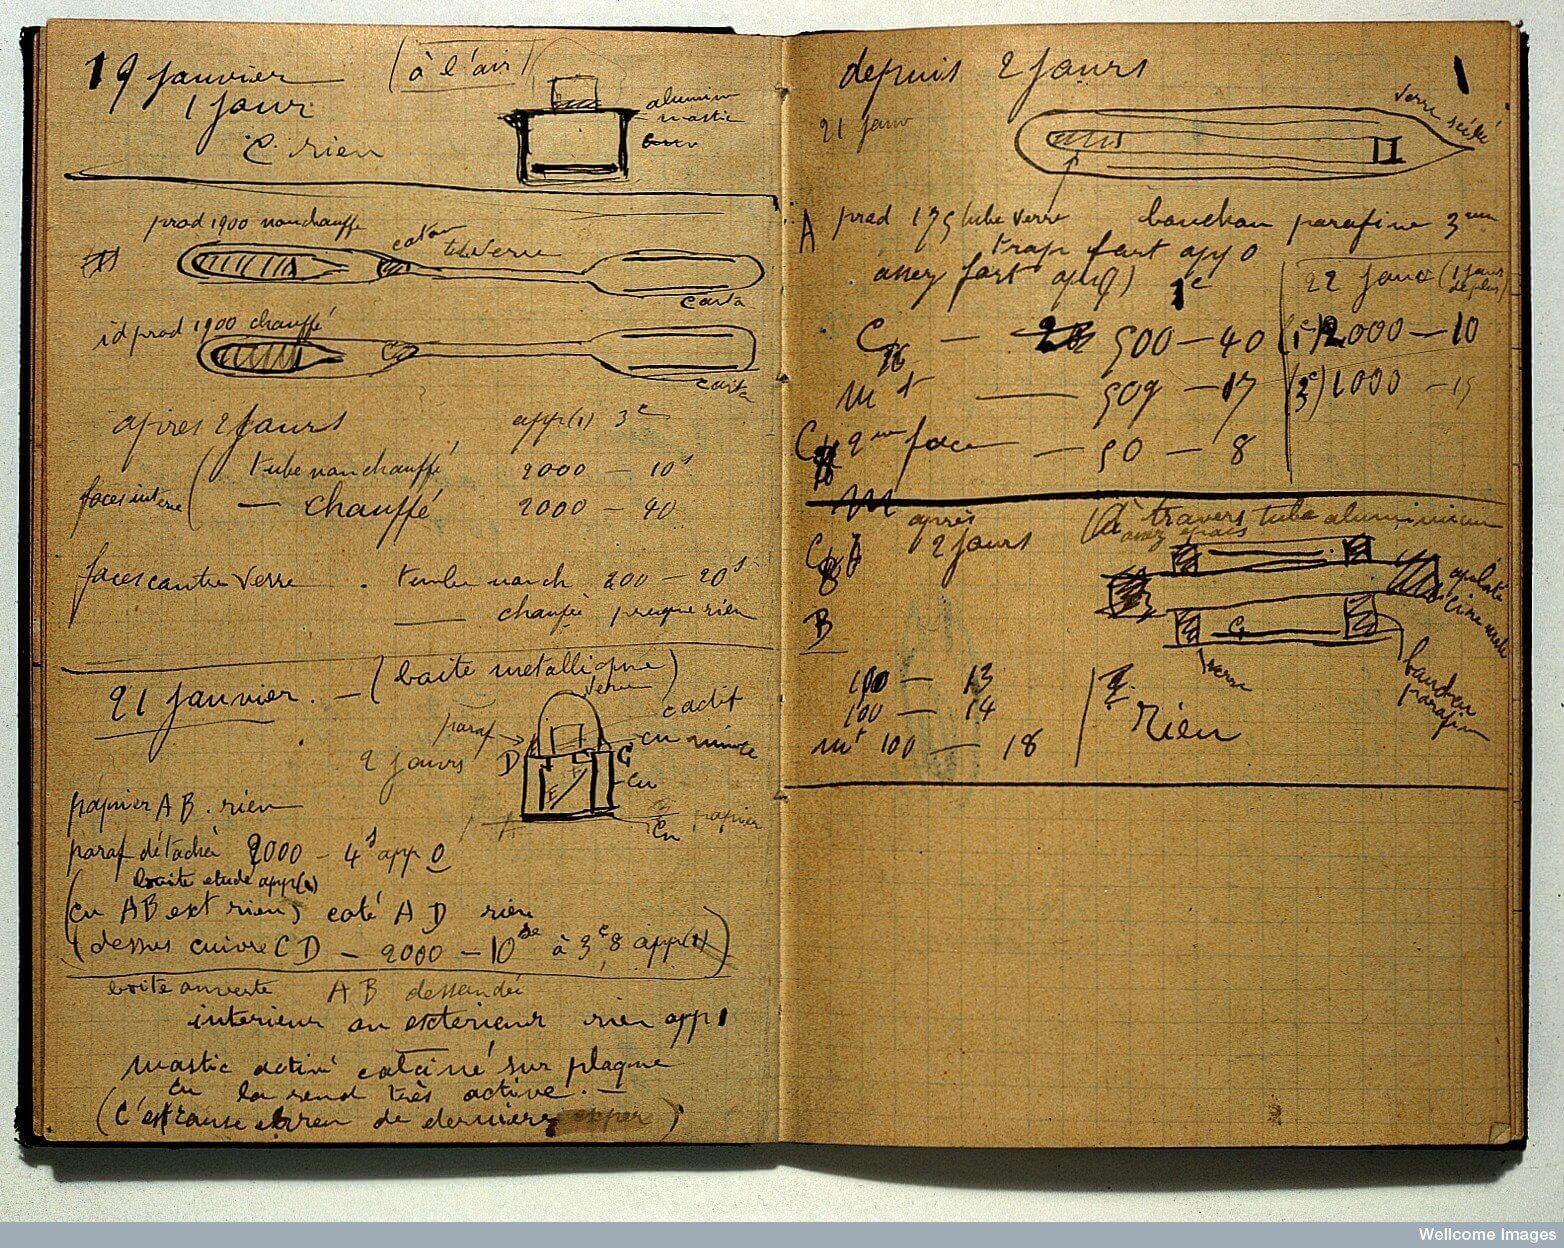 19 janvier (à l'air)
1 jour
C rien
alumin
mastic
prod 1900 non chauffé
coton
tube verre
carta
id prod 1900 chauffé
carta
après 2 jours app(1) 3c
faces interne ( tube non chauffé 2000 — 10s
— chauffé 2000 — 40
faces contre verre . tube non ch 200 — 20s
— chauffé presque rien
21 janvier. — (boite metallique)
verre
paraf
c actif
cu mince
2 jours D C
cu
E
papier
Cu
papier AB . rien
paraf détaché 2000 — 4s app 0
boite etude app(1)
(cu AB ext rien) coté AD rien
(dessus cuivre CD — 2000 — 10 de à 3c8 app(1))
boite ouverte AB dessoudé
interieur ou exterieur rien app 1
mastic activé calciné sur plaque
cu la rend très active. —
(C'est cause erreur de dernière exper)
depuis 2 jours 1
21 janv
verre scellé
A prod 175 tube verre bouchon parafine 3mm
trop fort app 0
assez fort app 1c
22 janv (1 jour de plus)
C — 500 — 40 (1c) 2000 — 10
mt — 509 — 17 (3c) 1000 — 15
C 2me face — 50 — 8
m
après
2 jours
(à travers tube aluminium
assez épais
C
B
C
verre
bouchon
parafin
100 — 13
100 — 14
mt 100 — 18
rien
Wellcome Images